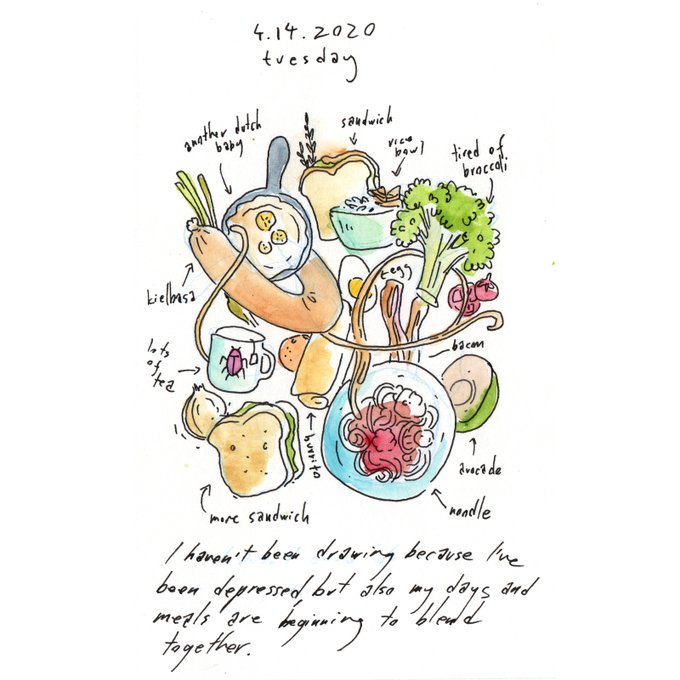 4.14.2020
tuesday
another dutch
baby
sandwich
rice
bowl
tired of
broccoli
kielbasa
egg
lots
of
tea
bacon
burrito
avocado
more sandwich
noodle
I haven't been drawing because I've
been depressed, but also my days and
meals are beginning to blend
together.